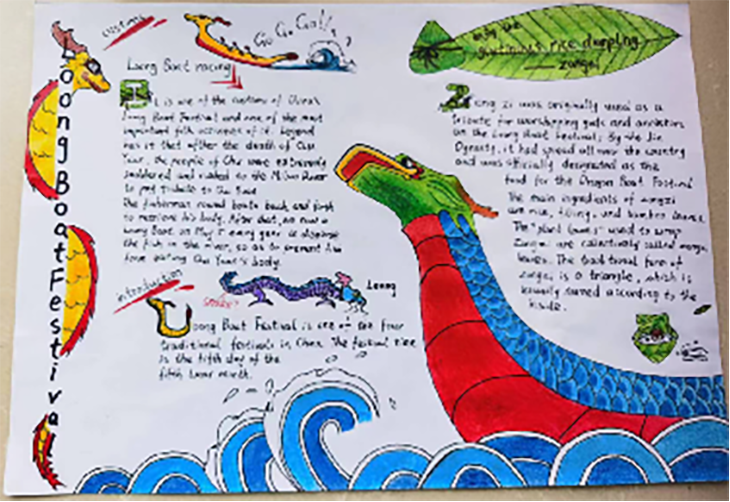 Loong Boat Festival
customs
Go Go Go!!
Loong Boat racing
It is one of the customs of China's
Loong Boat Festival and one of the most
important folk activities of it. Legend
has it that after the death of Qu
Yuan, the people of Chu were extremely
saddened and rushed to the Miluo River
to pay tribute to
The fisherman rowed boats back and forth
to retrieve his body. After that, on
Loong Boat on May 5 every year to disperse
the fish in the river, so as to prevent
from eating Qu Yuan's body.
introduction
Loong
Loong Boat Festival is one of the four
traditional festivals in China. The festival
is the fifth day of the
fifth lunar month.
enjoy the
glutinous rice dumpling
—— zongzi
Zong zi was originally used as a
tribute for worshipping gods and ancestors
on the Loong Boat Festival; By the Jin
Dynasty, it had spread all over the country
and was officially designated as the
food for the Dragon Boat Festival
The main ingredients of zongzi
are rice, filling, and bamboo leaves.
The "plant leaves" used to wrap
zongzi are collectively called
leaves. The traditional form of
zongzi is a triangle, which is
usually named according to the
inside.